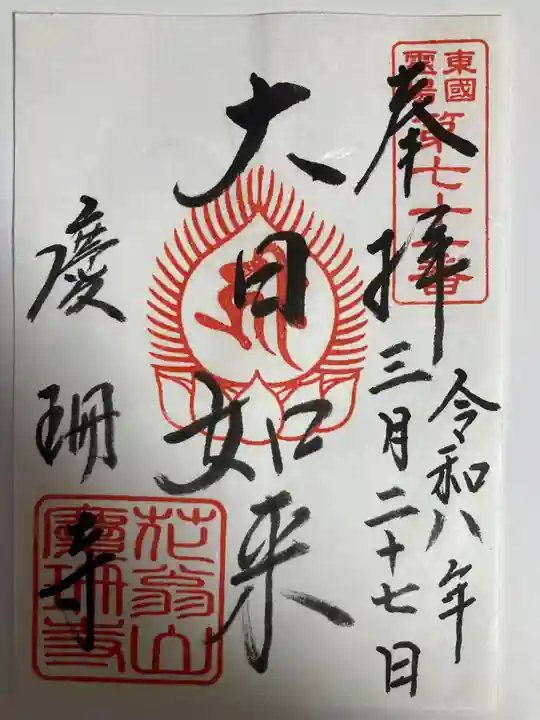 東國
霊場
第七十二番
奉拝
令和八年
三月二十七日
大日如来
慶珊寺
花翁山
慶珊寺